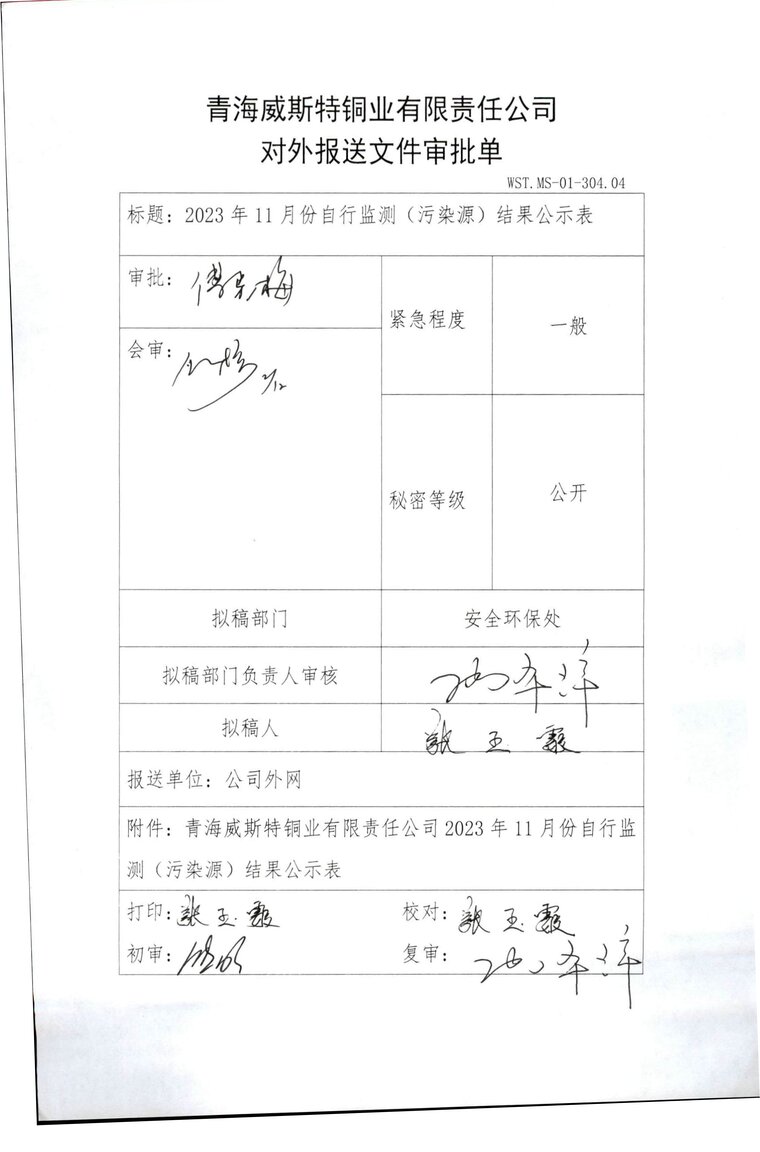 青海威斯特铜业有限责任公司
对外报送文件审批单
WST.MS-01-304.04
标题：2023 年 11 月份自行监测（污染源）结果公示表
审批：
紧急程度
一般
会审：
秘密等级
公开
拟稿部门
安全环保处
拟稿部门负责人审核
拟稿人
张玉霞
报送单位：公司外网
附件：青海威斯特铜业有限责任公司 2023 年 11 月份自行监
测（污染源）结果公示表
打印：张玉霞
校对：张玉霞
初审：
复审：